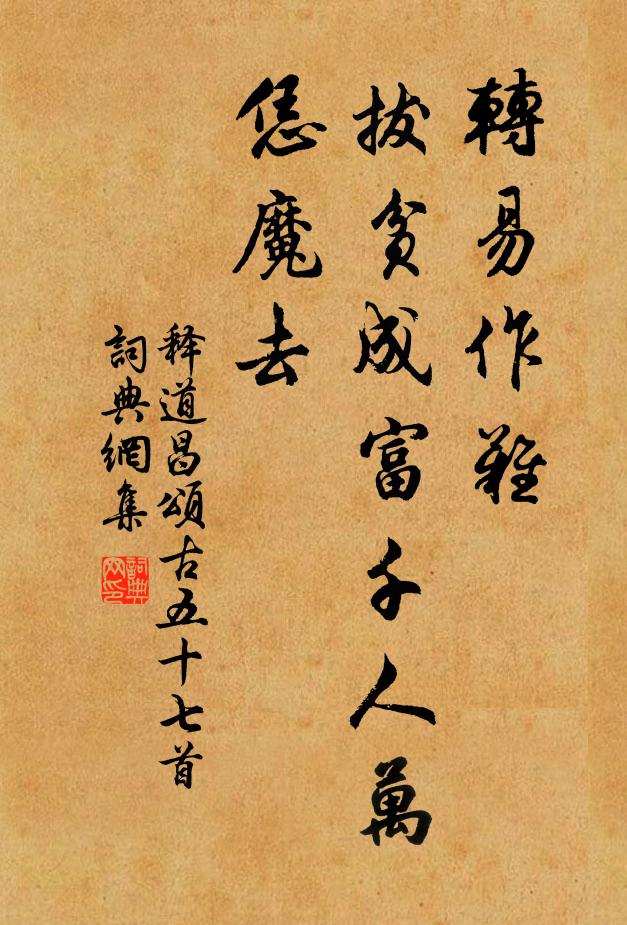 轉易作難
拔貧成富千人萬
恁魔去
释道昌頌古五十七首
詞典網集
詞典網印